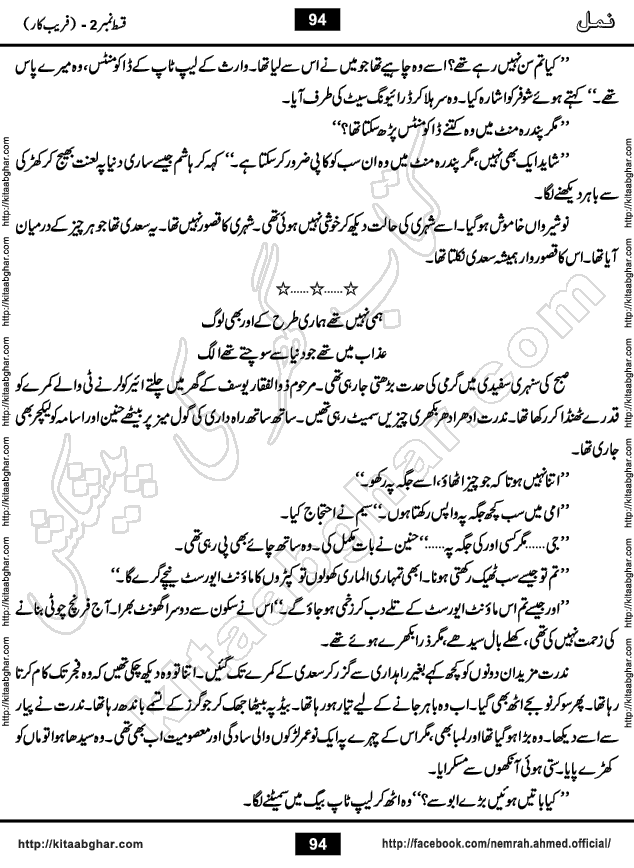 نمل
94
قسط نمبر 2 - (فریب کار)
’’ کیا تم سن نہیں رہے تھے؟ اسے وہ چاہیے تھا جو میں نے اس سے لیا تھا۔ وارث کے لیپ ٹاپ کے ڈاکومنٹس، وہ میرے پاس
تھے۔‘‘ کہتے ہوئے شوفر کو اشارہ کیا۔ وہ سر ہلا کر ڈرائیونگ سیٹ کی طرف آیا۔
’’ مگر پندرہ منٹ میں وہ کتنے ڈاکومنٹس پڑھ سکتا تھا؟‘‘
’’ شاید ایک بھی نہیں، مگر پندرہ منٹ میں وہ ان سب کو کاپی ضرور کر سکتا ہے۔‘‘ کہہ کر ہاشم جیسے ساری دنیا پہ لعنت بھیج کر کھڑکی
سے باہر دیکھنے لگا۔
نوشیرواں خاموش ہو گیا۔ اسے شہری کی حالت دیکھ کر خوشی نہیں ہوئی تھی۔ شہری کا قصور نہیں تھا۔ یہ سعدی تھا جو ہر چیز کے درمیان
آیا تھا۔ اس کا قصوروار ہمیشہ سعدی نکلتا تھا۔
☆......☆......☆
ہمی نہیں تھے ہماری طرح کے اور بھی لوگ
عذاب میں تھے جو دنیا سے سوچتے تھے الگ
صبح کی سنہری سفیدی میں گرمی کی حدت بڑھتی جا رہی تھی۔ مرحوم ذوالفقار یوسف کے گھر میں چلتے ائیر کولر نے ٹی وی والے کمرے کو
قدرے ٹھنڈا کر رکھا تھا۔ ندرت ادھر ادھر بکھری چیزیں سمیٹ رہی تھیں۔ ساتھ ساتھ راہداری کی گول میز پر بیٹھے حنین اور اسامہ کو لیکچر بھی
جاری تھا۔
’’ اتنا نہیں ہوتا کہ جو چیز اٹھاؤ، اسے جگہ پہ رکھو۔‘‘
’’ امی میں سب کچھ جگہ پہ واپس رکھتا ہوں۔‘‘ سیم نے احتجاج کیا۔
’’ جی...... مگر کسی اور کی جگہ پہ......‘‘ حنین نے بات مکمل کی۔ وہ ساتھ چائے بھی پی رہی تھی۔
’’ تم تو جیسے سب ٹھیک رکھتی ہونا۔ ابھی تمہاری الماری کھولوں تو کپڑوں کا ماؤنٹ ایورسٹ نیچے گرے گا۔‘‘
’’ اور جیسے تم اس ماؤنٹ ایورسٹ کے تلے دب کر زخمی ہو جاؤ گے۔‘‘ اس نے سکون سے دوسرا گھونٹ بھرا۔ آج فرنچ چوٹی بنانے
کی زحمت نہیں کی تھی، کھلے بال سیدھے، مگر ذرا بکھرے ہوئے تھے۔
ندرت مزید ان دونوں کو کچھ کہے بغیر راہداری سے گزر کر سعدی کے کمرے تک گئیں۔ اتنا تو وہ دیکھ چکی تھیں کہ وہ فجر تک کام کرتا
رہا تھا۔ پھر سو کر نو بجے اٹھ بھی گیا۔ اب وہ باہر جانے کے لیے تیار ہو رہا تھا۔ بیڈ پہ بیٹھا جھک کر جوگرز کے تسمے باندھ رہا تھا۔ ندرت نے پیار
سے اسے دیکھا۔ وہ بڑا ہو گیا تھا اور لمبا بھی، مگر اس کے چہرے پہ ایک نوعمر لڑکوں والی سادگی اور معصومیت اب بھی تھی۔ وہ سیدھا ہوا تو ماں کو
کھڑے پایا۔ ستی ہوئی آنکھوں سے مسکرایا۔
’’ کیا باتیں ہوئیں بڑے ابو سے؟‘‘ وہ اٹھ کر لیپ ٹاپ بیگ میں سمیٹنے لگا۔
http://kitaabghar.com
94
http://facebook.com/nemrah.ahmed.official/
http://kitaabghar.com
http://kitaabghar.com
http://kitaabghar.com
http://kitaabghar.com
http://kitaabghar.com
http://kitaabghar.com
http://kitaabghar.com
http://kitaabghar.com
http://kitaabghar.com
http://kitaabghar.com
http://kitaabghar.com
http://kitaabghar.com
کتاب گھر کی پیشکش
kitaabghar.com